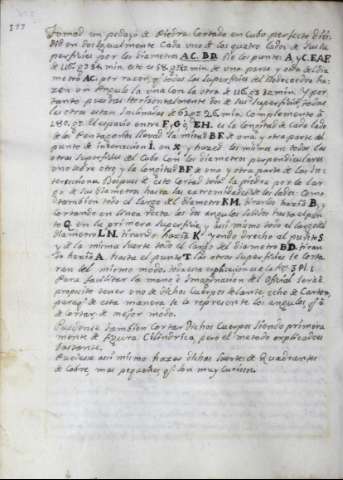 Tomad un pedazo de Piedra Cortada en Cubo perfecto divi
dido en dos igualmente Cada uno de los quatro lados de sus su
perficies por los diametros AC. BB. de los puntos A y C. EAF
de 116.g 34. min este es 58.g 17. min de una parte y otra del dia
metro AC. por razon q todas las superficies del
zen un Angulo la una con la otra de 116.g 32 min. Y por
tanto puestas horizontalmente dos de sus superficies todas
las otras estan inclinadas de 63.g 26. min. Complemento a
180. g.s El espacio entre F, G o E H. es la longitud de Cada lado
de los Pentagonos llevad la mitad B F de una y otra parte del
punto de interseccion I. en X y hazed lo mismo en todas las
otras superficies del Cubo con los diametros perpendiculares
uno sobre otro y la longitud BF de una y otra parte de los in
tersecciones Despues de este Cortad toda la piedra por lo lar
go de sus diametros hasta las extremidades de los lados. Como
tambien todo el largo del diametro KM. tirando hazia B,
Cortando en linea recta los dos angulos solidos hasta el pun
to Q en la primera superficie y assi mismo todo el largo del
diametro LN. tirando hazia K. yendo derecho al punto S
y de la misma suerte todo el largo del diametro BD. tiran
do hazia A. hasta el punto T. las otras superficies se corta
ran del mismo modo.
Para facilitar la mano e Imaginacion del oficial sera
proposito tener uno de dichos cuerpos delante hecho de Carton,
paraq de esta manera se le represente los angulos q a
de cortar, de mejor modo.
Puedense tambien Cortar Dichos Cuerpos siendo primera
mente de figura Cilindrica pero el metodo explicado es
bastante.
Puedese assi mismo hazer dichas suertes de Quadrantes
de Cobre, mas pequeños q son muy curiosos.